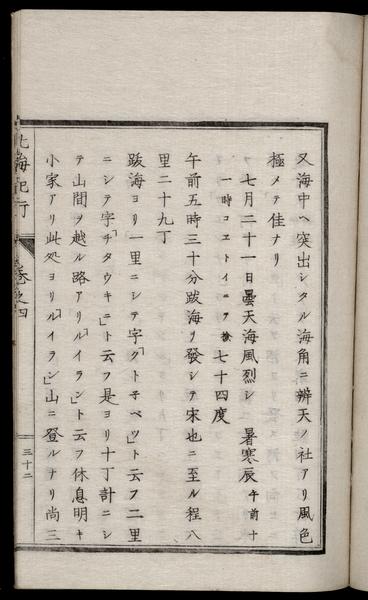 又海中ヘ突出シタル海角ニ辨天ノ社アリ風色
極メテ佳ナリ
七月二十一日曇天海風烈シ 暑寒辰 午前十
一時コヱトイニテ 七十四度
午前五時三十分跋海ヲ發シテ宋也ニ至ル程八
里二十九丁
跋海ヨリ一里ニシテ字「クトモベツ」ト云フ二里
ニシテ字「チタウキニ」ト云フ是ヨリ十丁計ニシ
テ山間ヲ越ル路アリ「ルイラン」ト云フ休息明キ
小家アリ此処ヨリ「ルイラン」山ニ登ルナリ尚三
北海紀行
巻之四
三十二